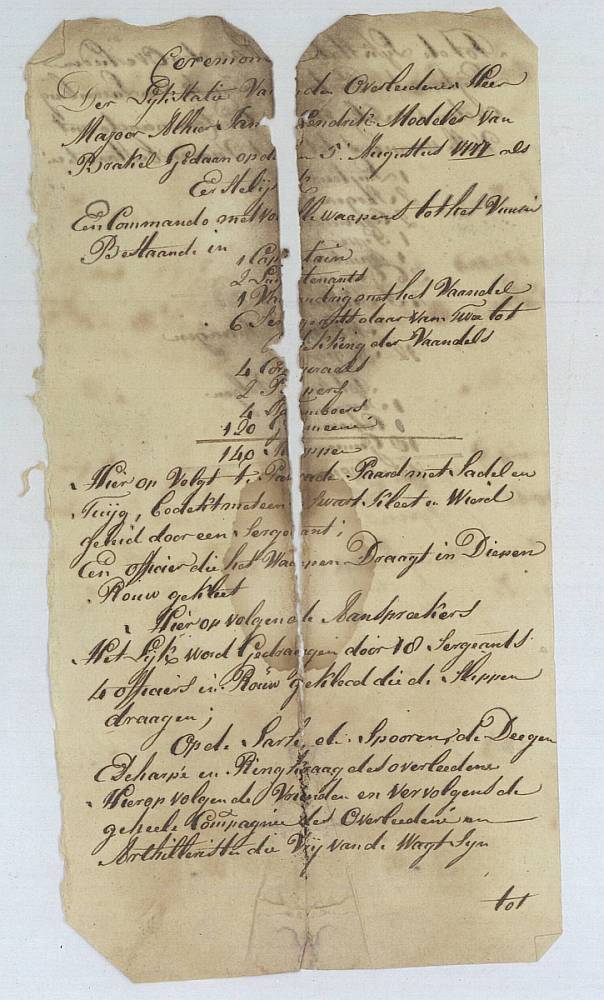 Ceremon
Der Lijkstatie Van den Overleedenen Heer
Majoor Alhier Jan Hendrik Modeler van
Brakel Gedaan op de 5 Augustus 1777 als
Eerstelijk
Een Commando met vo lle waapens tot het Vuuren
Bestaande in
1 Capitain
2 Luitenants
1 Vaandrig met het Vaandel
6 Sergeants daar van Twee tot
dekking der Vaandels
4 Corporaals
2 Pijpers
4 Tamboers
120 Gemeene
140 Koppen
Hier op Volgt 't Parade Paard met Sadel en
Tuijg, bedekt met een Swart Kleet en Wierd
geleid door een Sergeant;
Een officier die het Waapen Draagt in Diepen
Rouw gekleet
Hier op volgen de Aansprekers
Het Lijk word Gedraagen door 18 Sergeants
4 officiers in Rouw gekleed die de Slippen
draagen;
Op de Sark, de Spooren, de Deegen
Escharpe en Ringkraag des overleedene
Hierop volgen de Vrienden en vervolgens de
geheele Compagnie des Overleedene en
Arthilleristen die Vrij van de Wagt Syn
tot